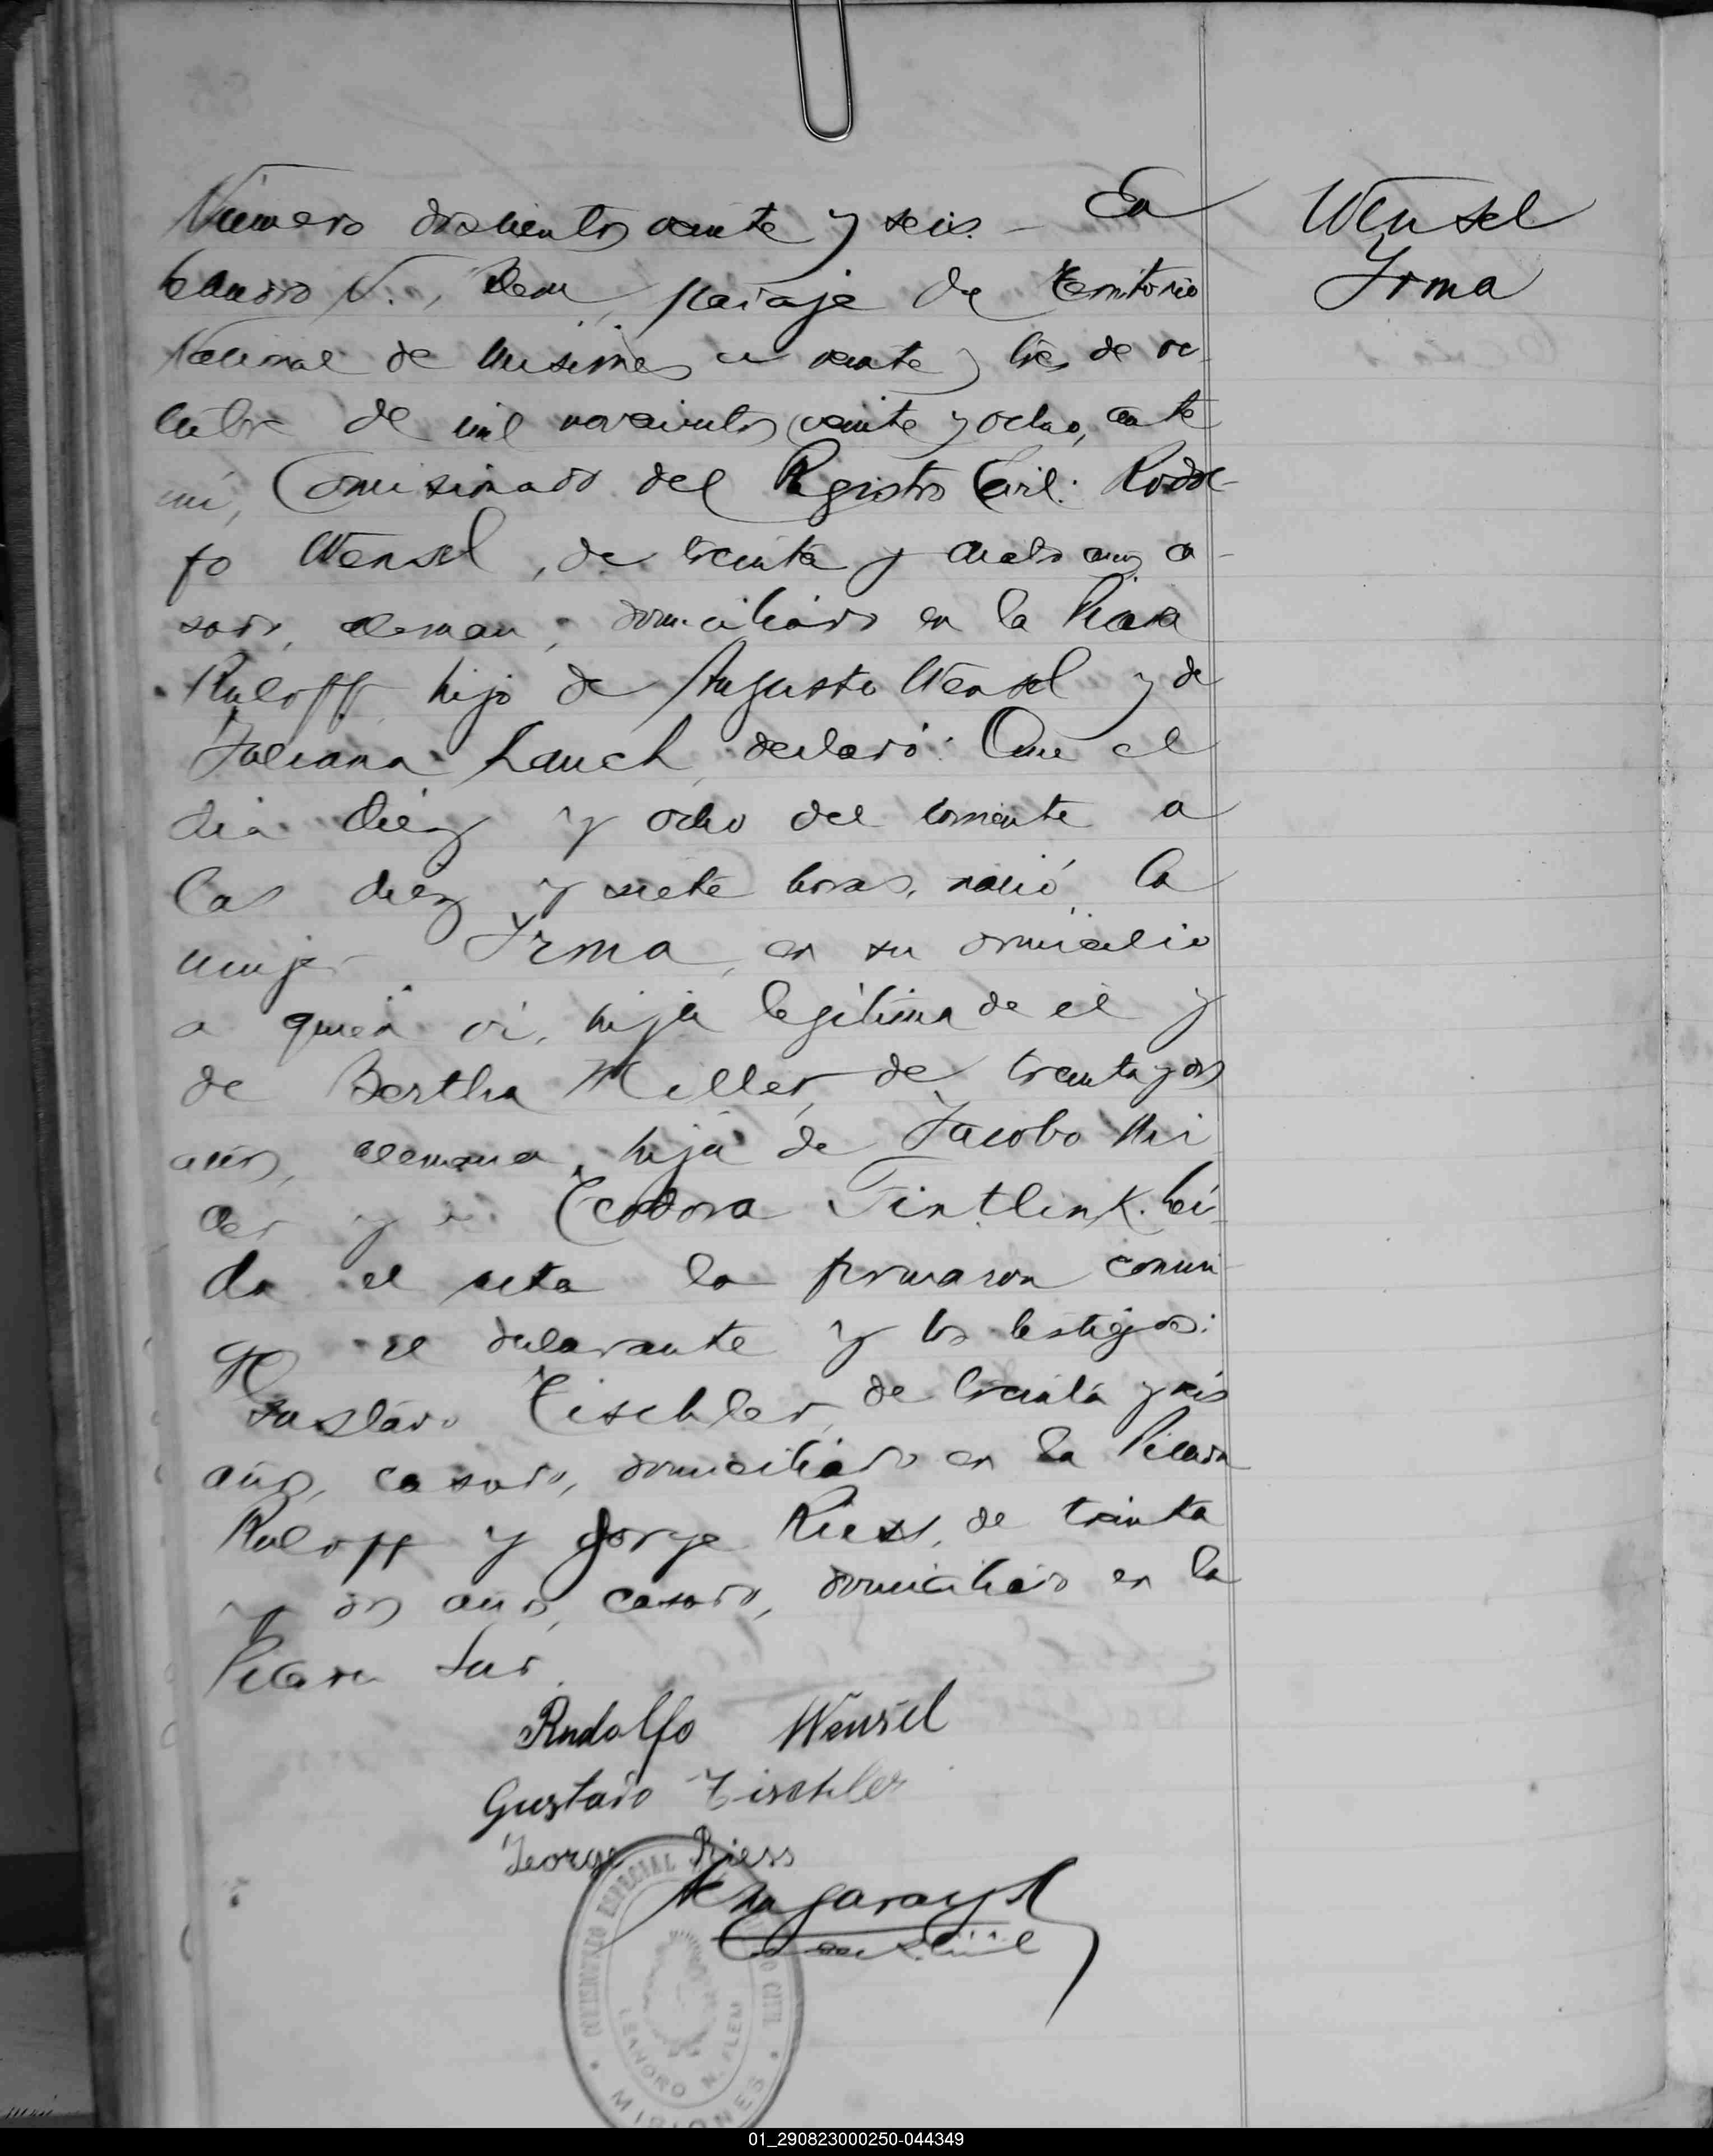 Número doscientos veinte y seis. - En
Leandro N. Alem, paraje de Territorio
Nacional de Misiones a veinte y tres de oc-
tubre de mil novecientos veinte y ocho, ante
mí, Comisionado del Registro Civil: Rodol-
fo Wensel, de treinta y cuatro años, ca-
sado, aleman, domiciliado en la Picada
Ruloff, hijo de Augusto Wensel y de
Juliana Lauch, declaró: Que el
dia diez y ocho del corriente a
las diez y siete horas, nació la
mujer Irma, en su domicilio
a quien vi, hija legítima de el y
de Bertha Miller, de treinta y dos
años, alemana, hija de Jacobo Mi
ller y de Teodora Tintlink. Leí-
da el acta la firmaron conmi-
go el declarante y los testigos:
Gustavo Tischler, de treinta y seis
años, casado, domiciliado en la Picada
Ruloff y Jorge Riess, de treinta
y dos años, casado, domiciliado en la
Picada Sur.
Rudolfo Wensel
Gustavo Tischler
George Riess
Wensel
Irma
ESPECIAL
CIVIL
LEANDRO N. ALEM
MISIONES
01_290823000250-044349